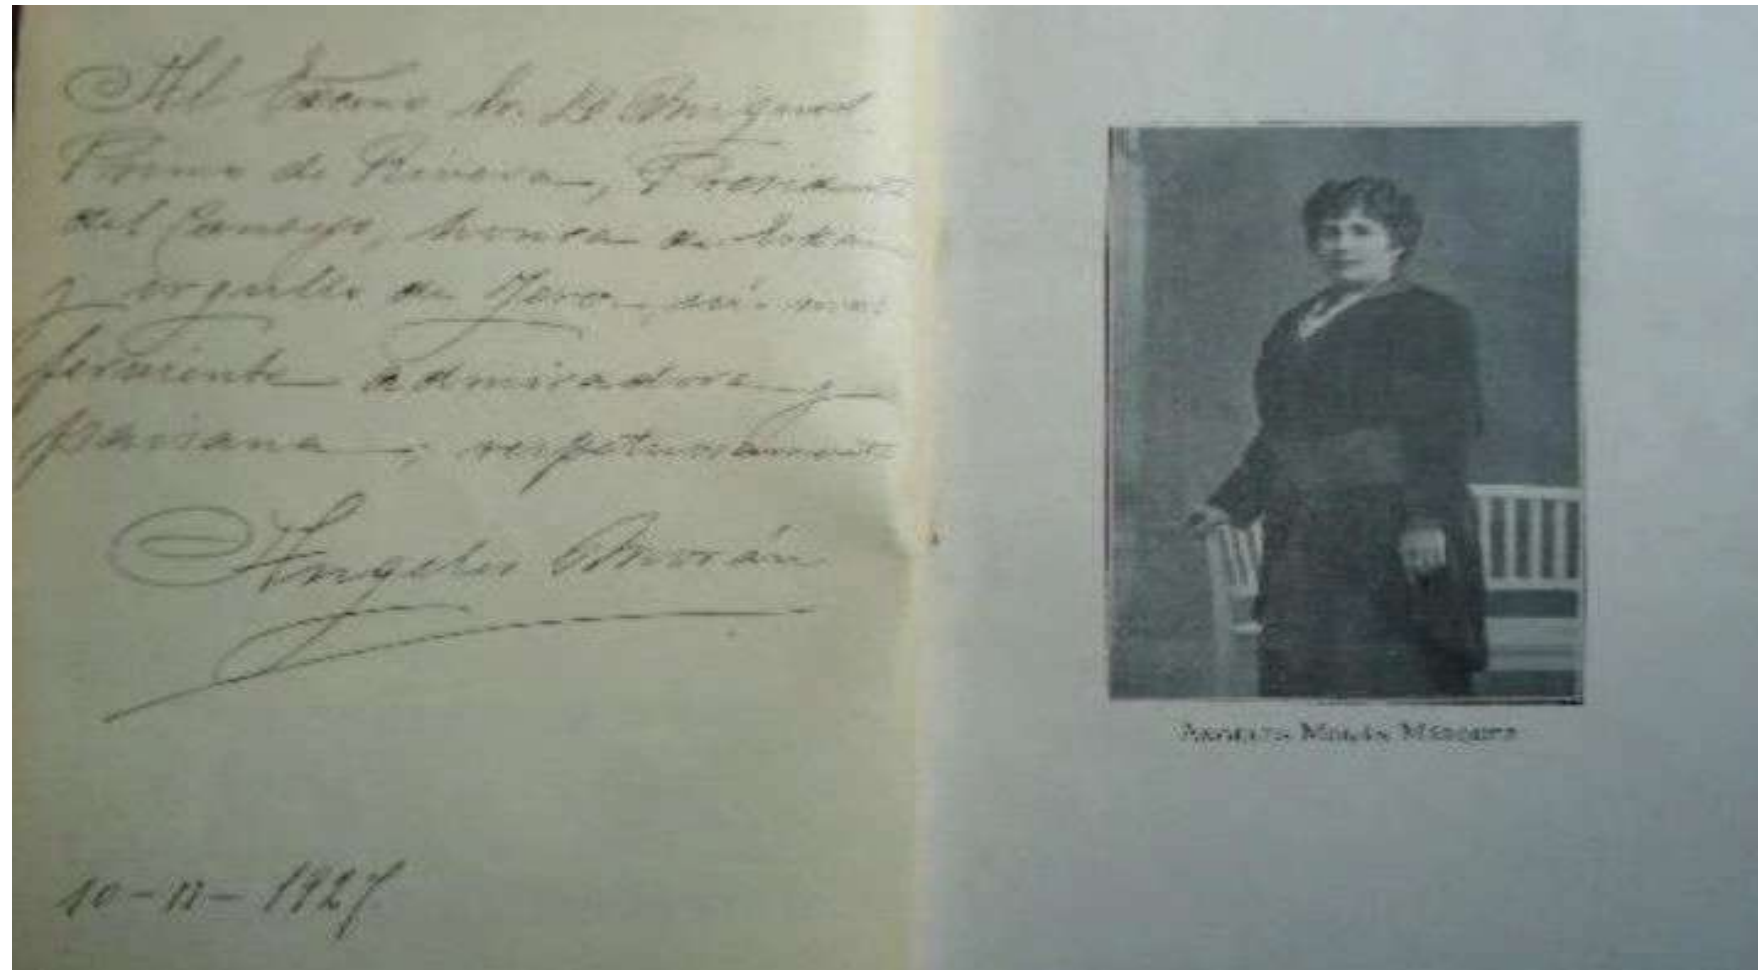 Al Excmo Sr. D. Miguel
Primo de Rivera, Presidente
del Consejo, honra de
y orgullo de Jerez, su mas
ferviente admiradora y
paisana, respetuosamente
Angeles Morán
10-11-1927
Angeles Morán Márquez